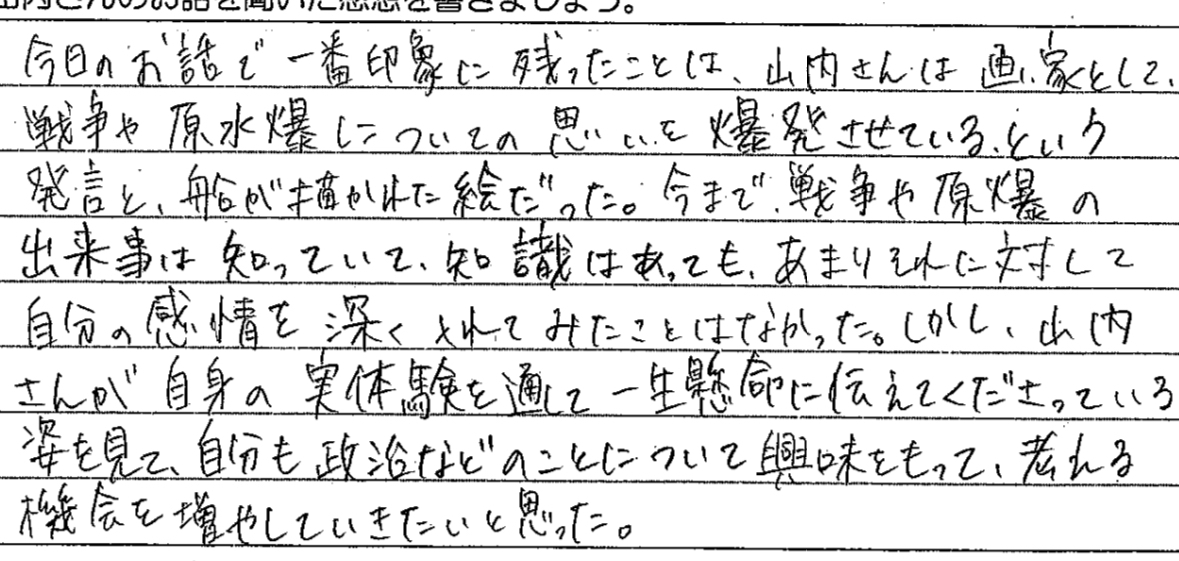 山内さんのお話を聞いた感想を書きましょう。
今日のお話で一番印象に残ったことは、山内さんは画家として、
戦争や原水爆についての思いを爆発させている、という
発言と、船が描かれた絵だった。今まで、戦争や原爆の
出来事は知っていて、知識はあっても、あまりそれに対して
自分の感情を深く入れてみたことはなかった。しかし、山内
さんが自身の実体験を通して一生懸命に伝えてくださっている
姿を見て、自分も政治などのことについて興味をもって、考れる
機会を増やしていきたいと思った。